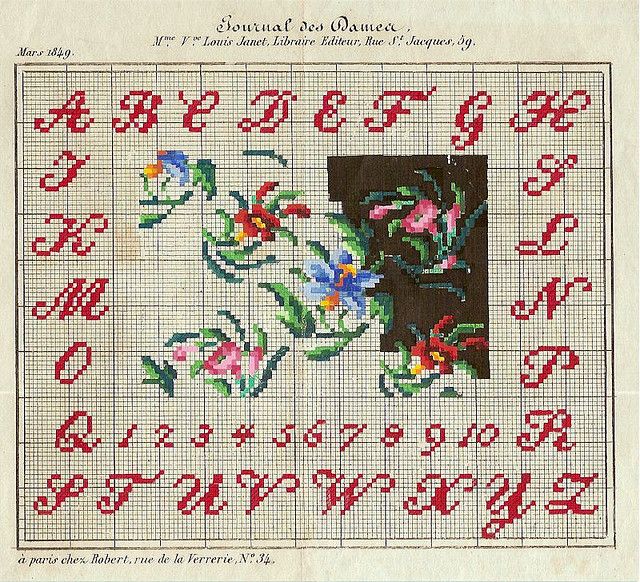 Journal des Dames,
M.me V.ve Louis Janet, Libraire Editeur, Rue S.t Jacques, 59.
Mars 1849.
A B C D E F G H
I J
K L
M N
O P
Q 1 2 3 4 5 6 7 8 9 10 R
S T U V W X Y Z
à paris chez Robert, rue de la Verrerie, N.o 34.